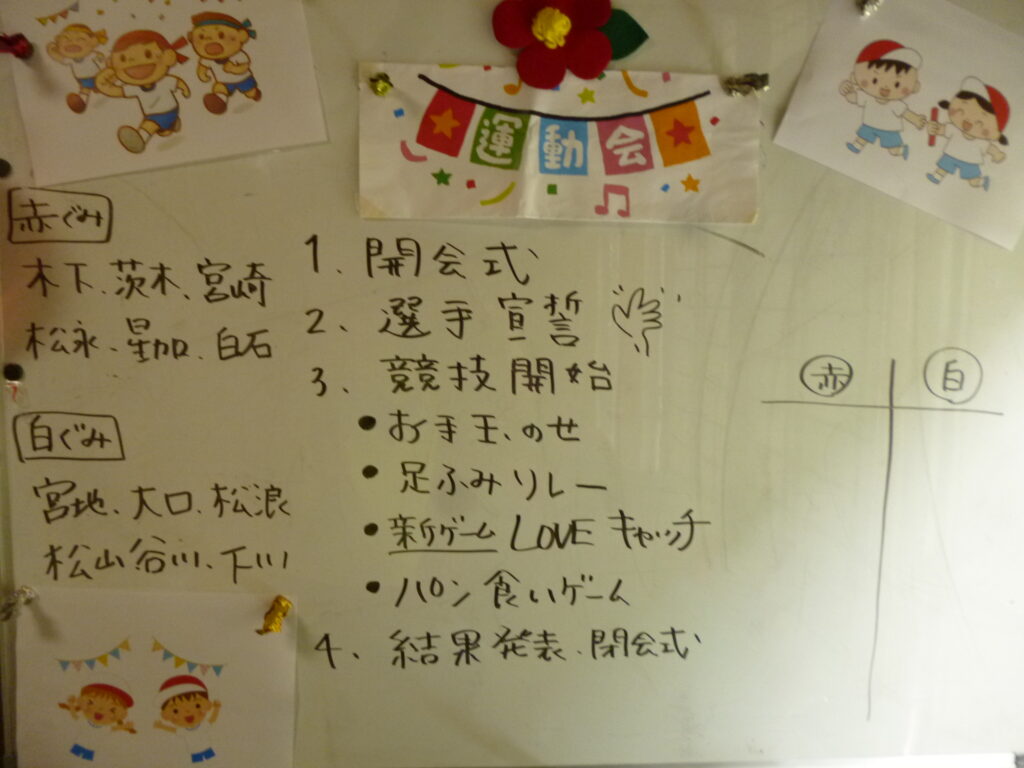 運動会
赤ぐみ
木下、茨木、宮崎
松永、星加、白石
白ぐみ
宮地、大口、松浪
松山、谷川、下川
1、開会式
2、選手宣誓
3、競技開始
・お手玉のせ
・足ふみリレー
・新ゲーム LOVE キャッチ
・パン食いゲーム
4、結果発表、閉会式
赤 白